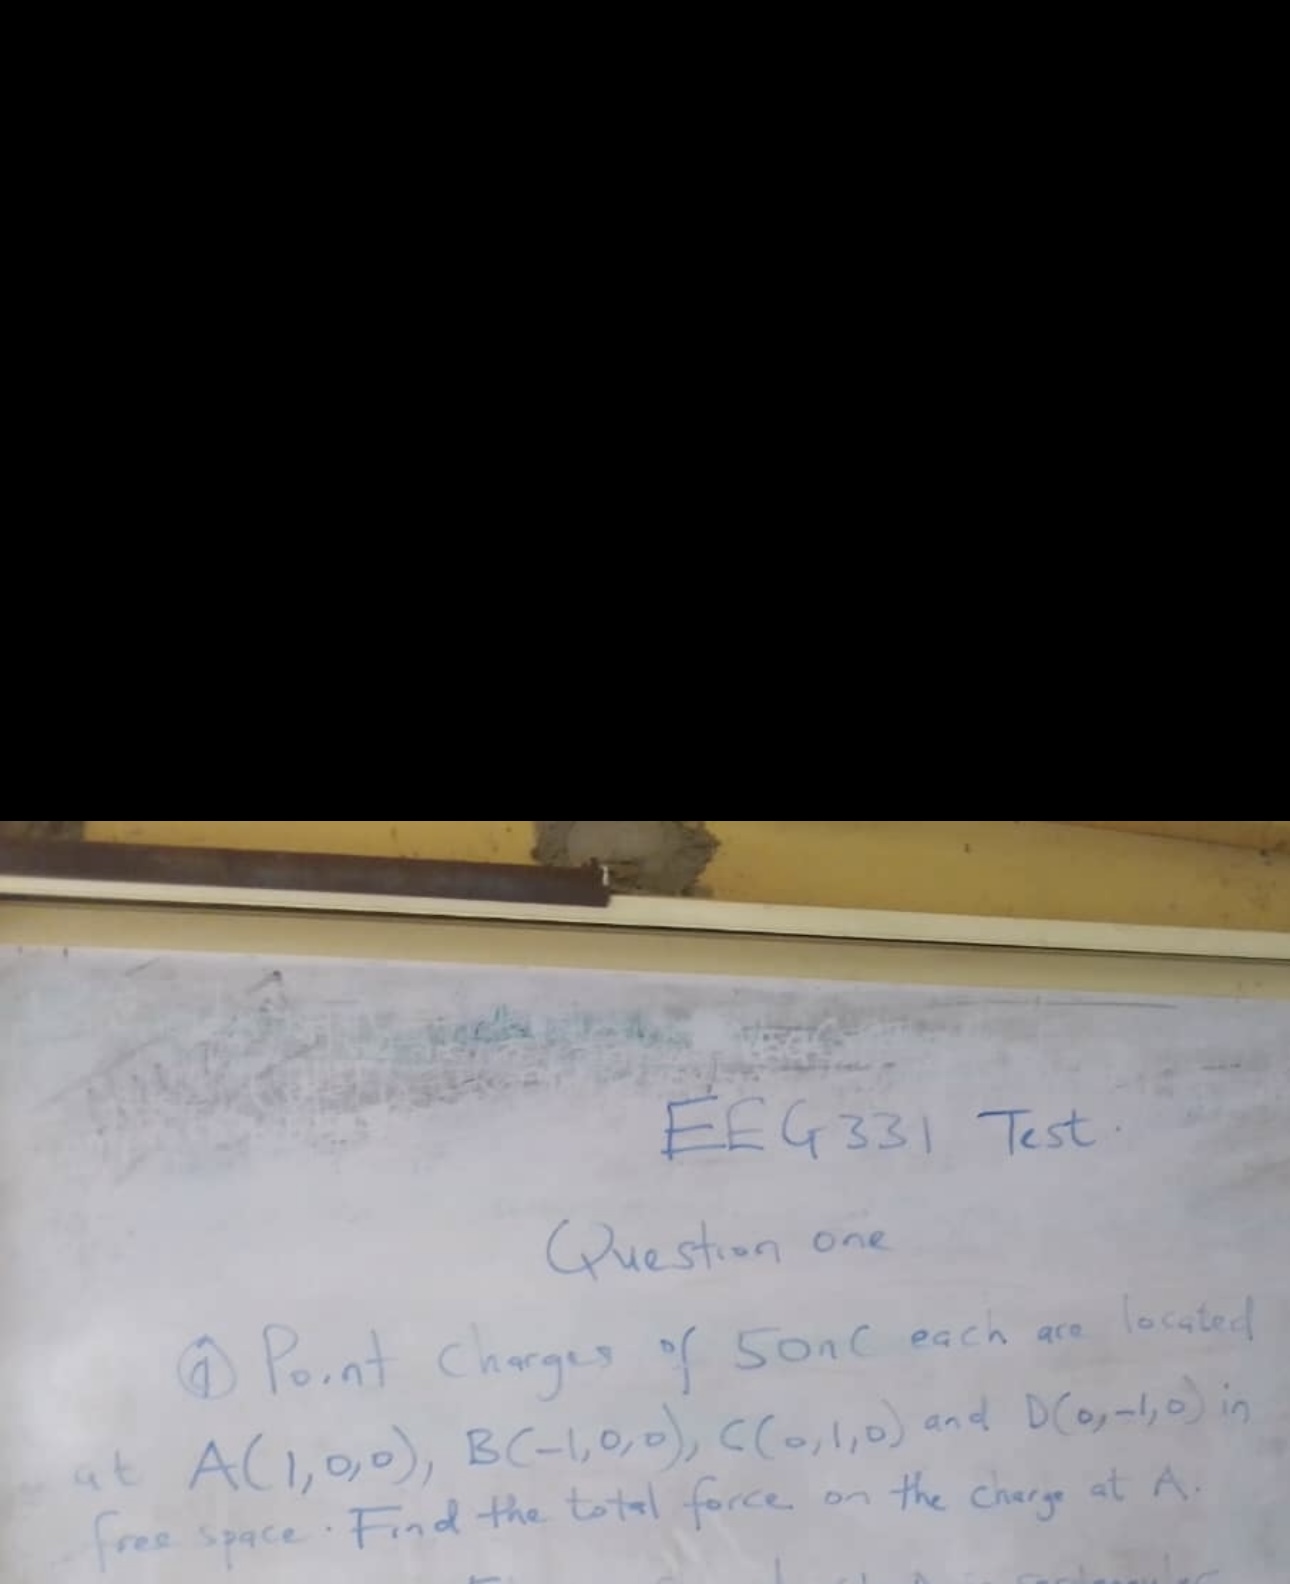 EEG331 Test.
Question one
a) Point Charges of 50nC each are located
at A(1,0,0), B(-1,0,0), C(0,1,0) and D(0,-1,0) in
free space. Find the total force on the charge at A.